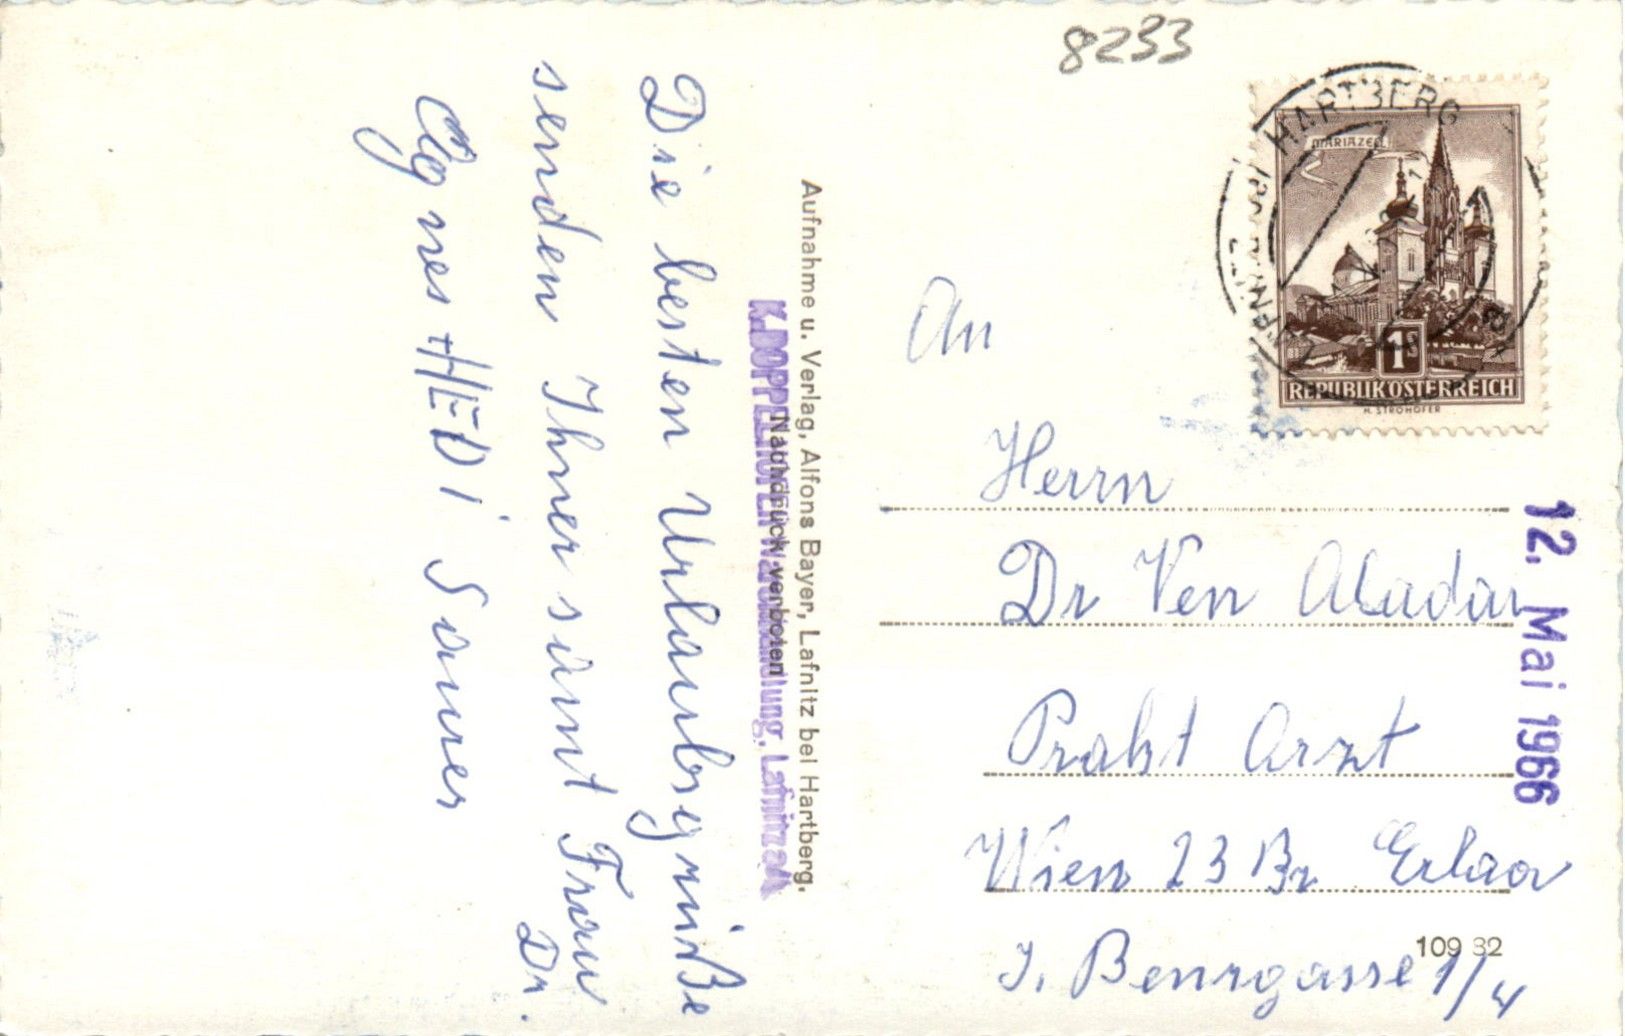 8233
HARTBERG
MARIAZELL
1S
REPUBLIK ÖSTERREICH
H. STROHOFER
12. Mai 1966
An
Herrn
Dr Ven Aladar
Prakt Arzt
Wien 23 Bz Erlaa
J. Benngasse 1/4
109 32
Aufnahme u. Verlag, Alfons Bayer, Lafnitz bei Hartberg.
Nachdruck verboten
K. DOPPELHOFER Warenhandlung, Lafnitz
Die besten Urlaubsgrüße
senden Ihnen samt Frau Dr.
Agnes HEDI Sauer